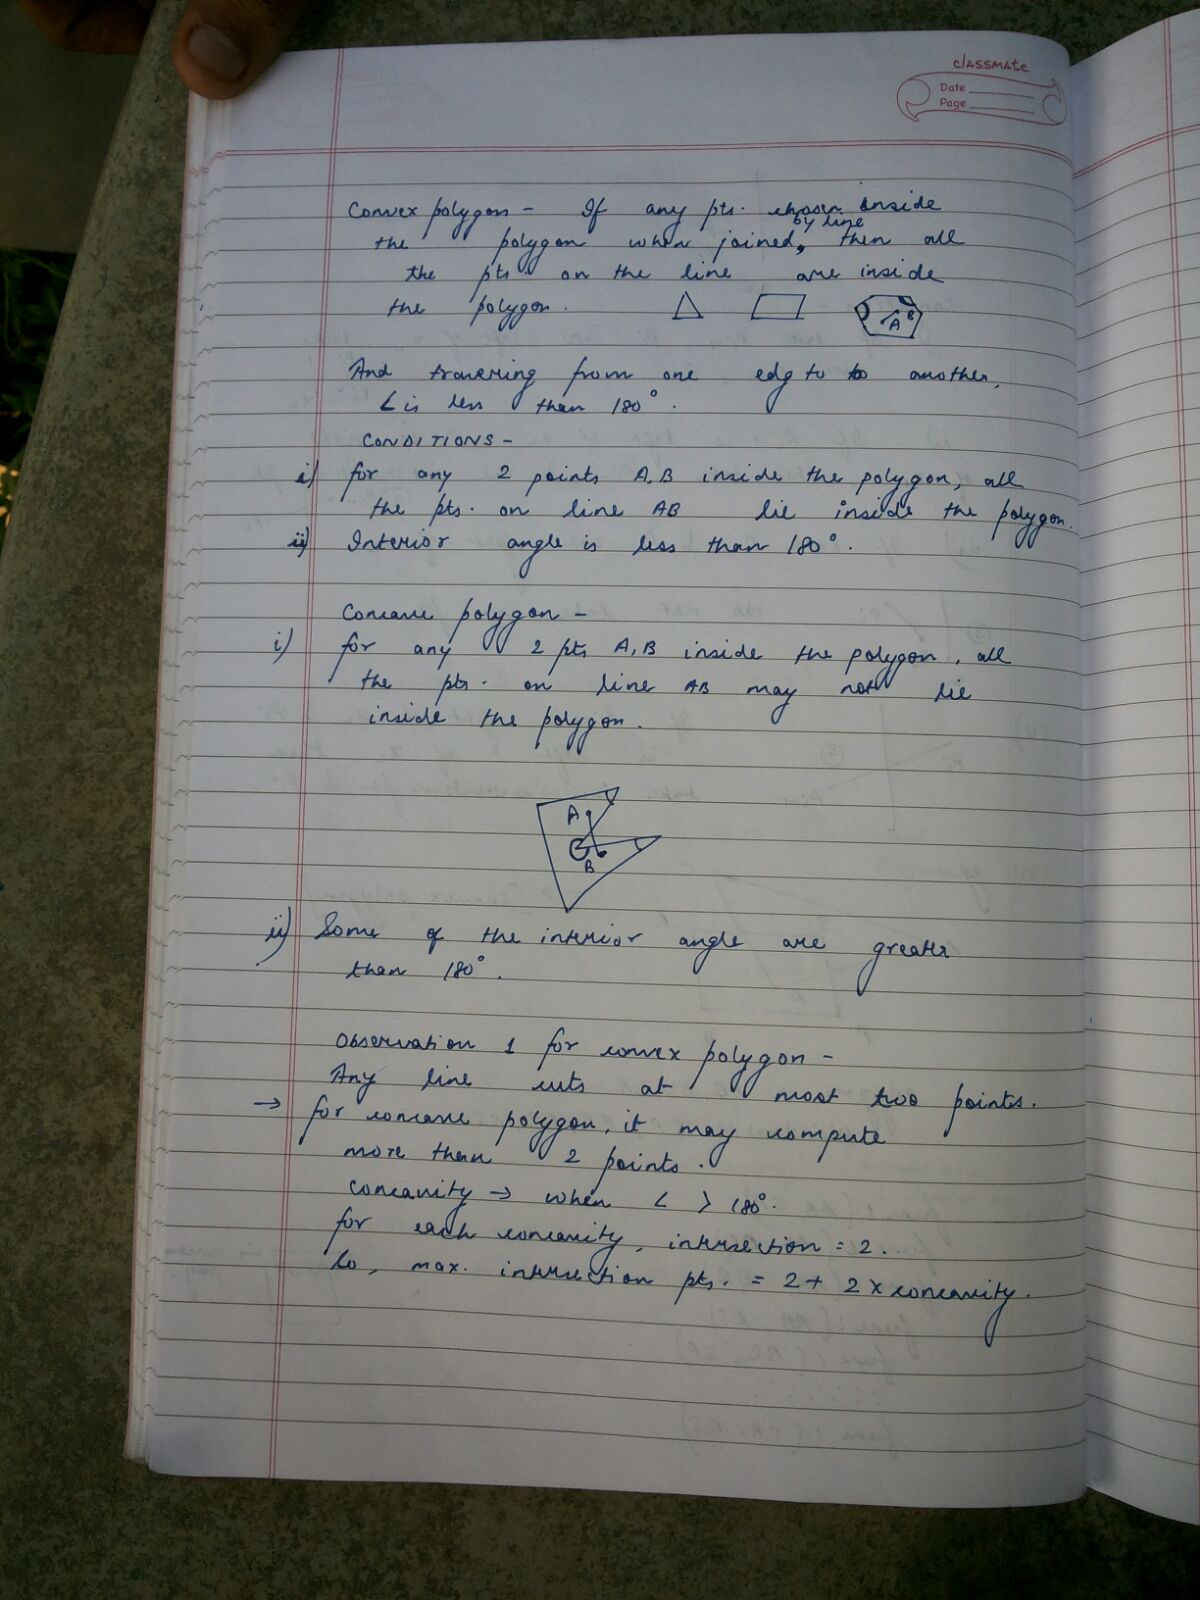 classmate
Date
Page
Convex polygon - If any pts. chosen inside
by line
the polygon when joined, then all
the pts on the line are inside
the polygon.
A B
And traversing from one edg to to another,
∠ is less than 180°.
CONDITIONS -
i) for any 2 points A, B inside the polygon, all
the pts. on line AB lie inside the polygon.
ii) Interior angle is less than 180°.
Concave polygon -
i) for any 2 pts A, B inside the polygon, all
the pts. on line AB may not lie
inside the polygon.
A
B
ii) Some of the interior angle are greater
than 180°.
Observation 1 for convex polygon -
Any line cuts at most two points.
→ for concave polygon, it may compute
more than 2 points.
Concavity → when ∠ > 180°.
for each concavity, intersection = 2.
So, max. intersection pts. = 2 + 2 x concavity.